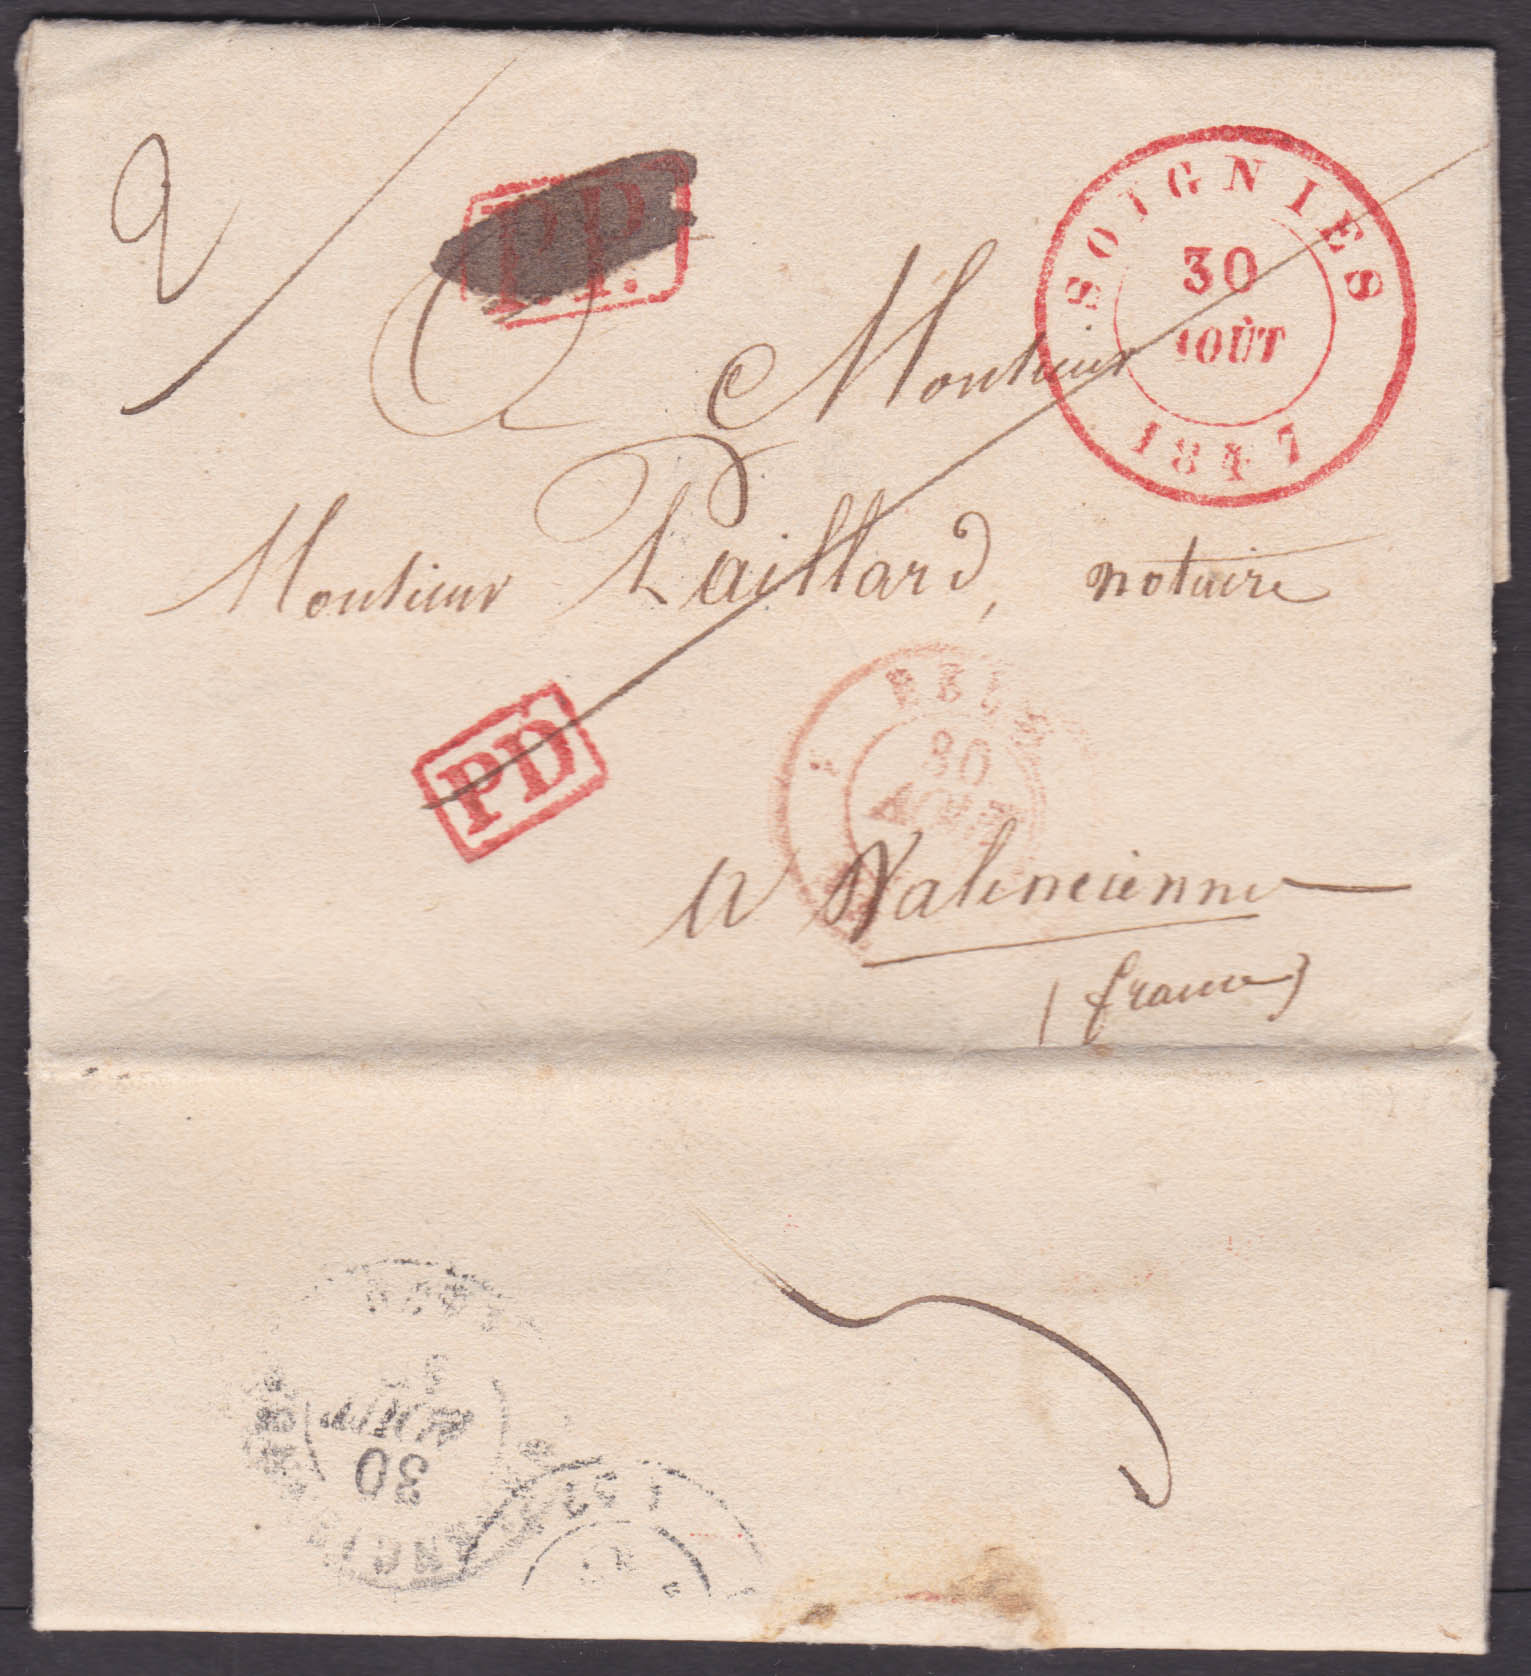 2
P.P.
SOIGNIES
30
AOÛT
1847
A Monsieur
Monsieur Paillard, notaire
PD
30
AOUT
a Valenciennes
(france)
3
AOUT
30